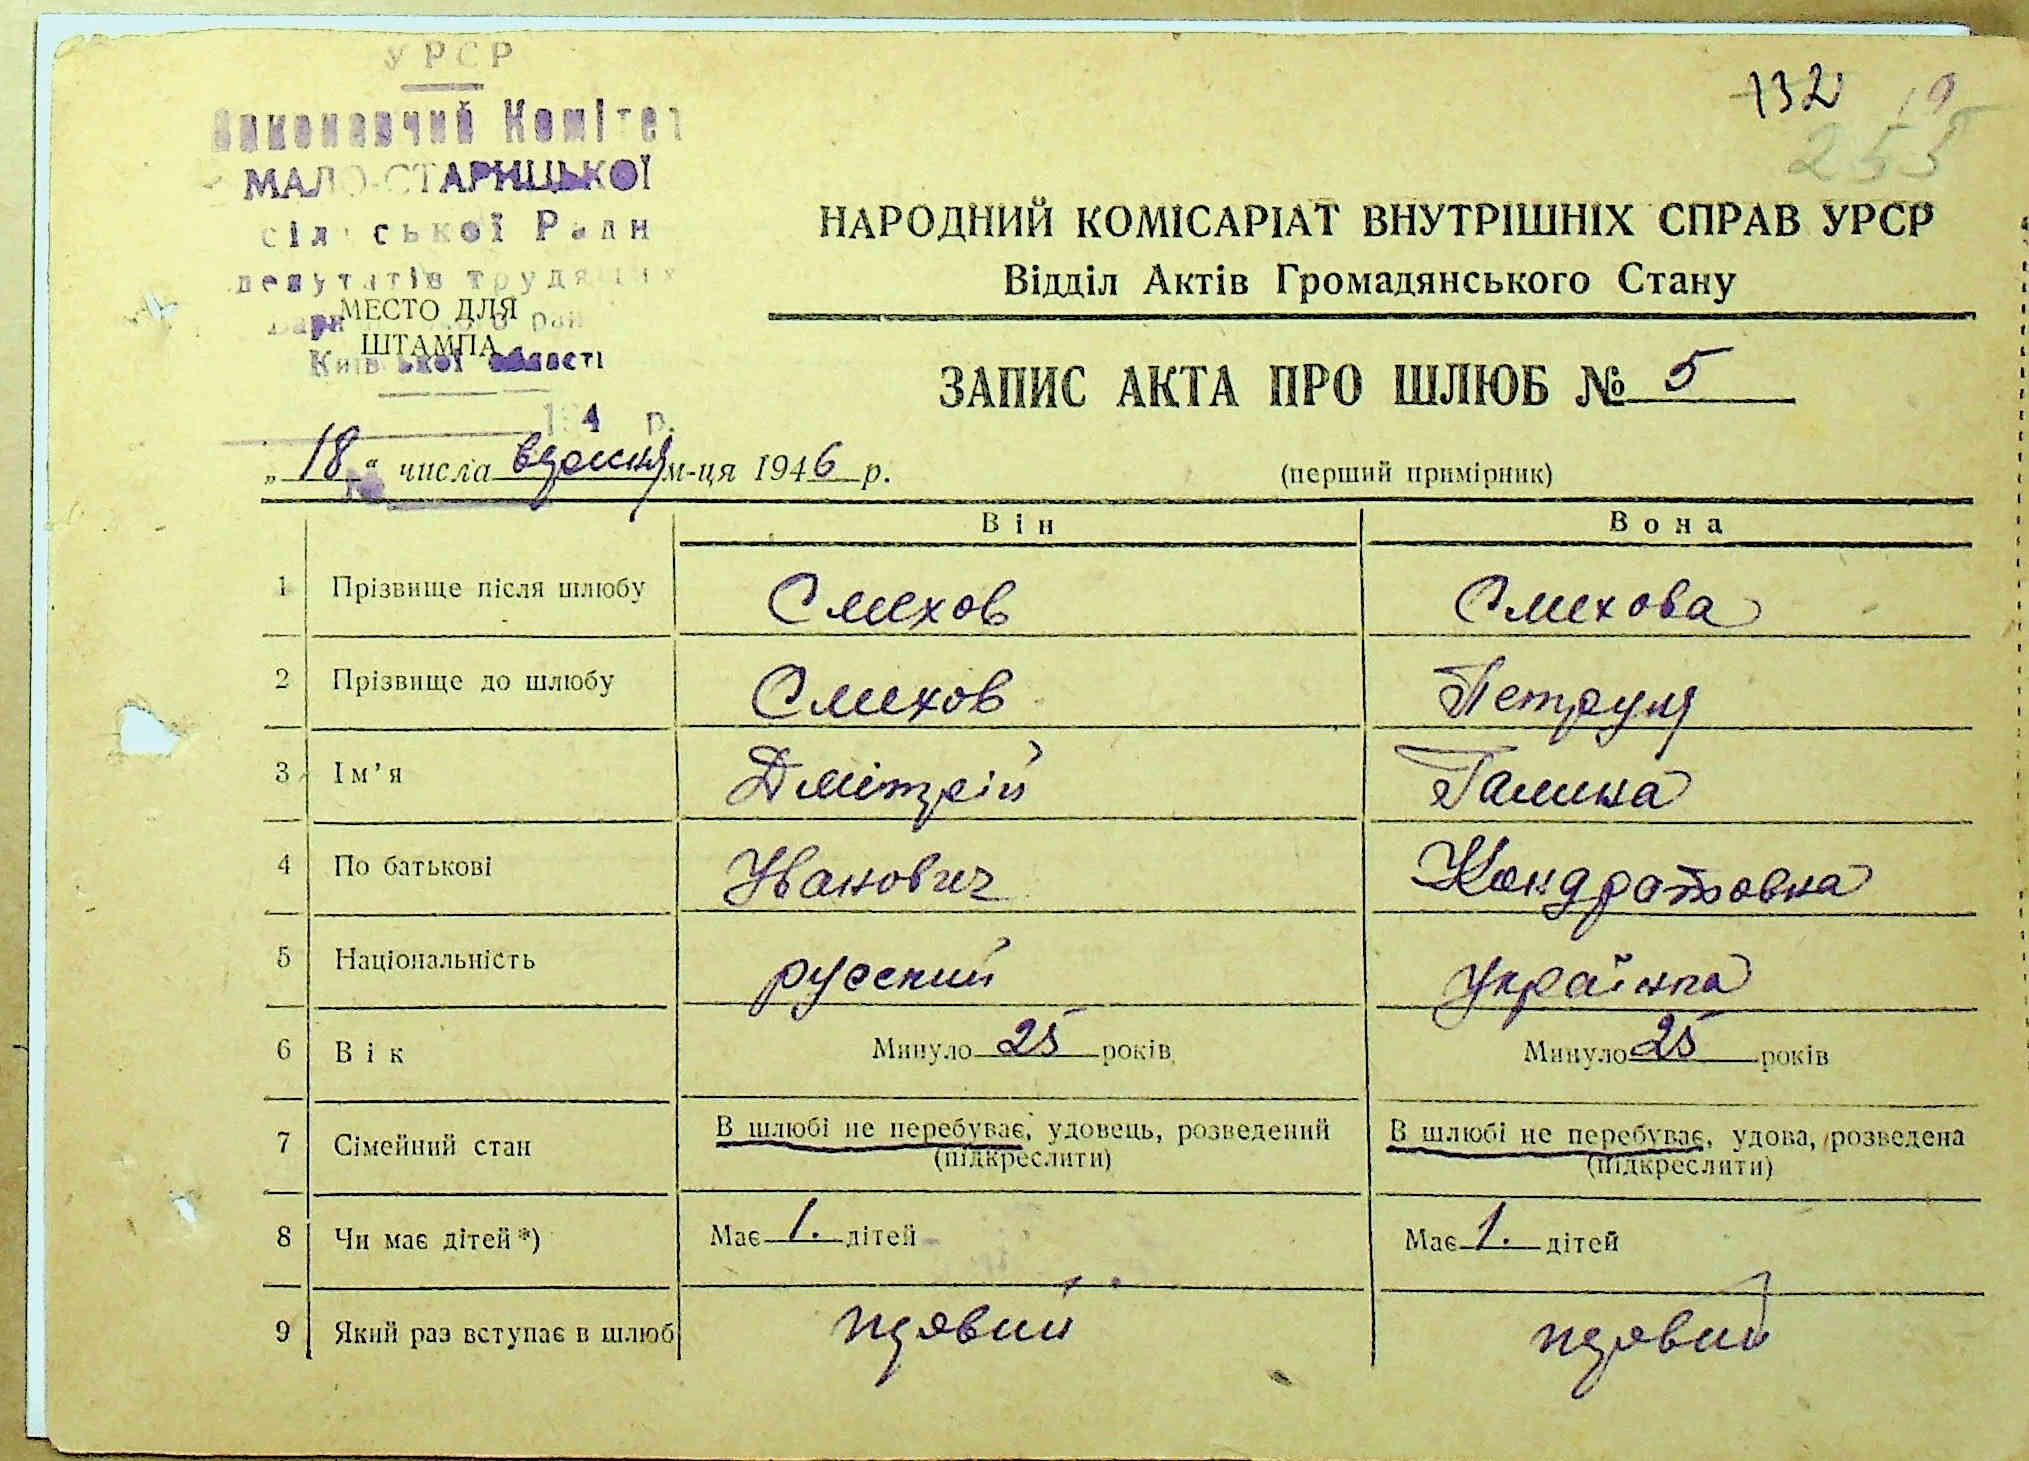 УРСР
Виконавчий Комітет
МАЛО-СТАРИЦЬКОЇ
сільської Ради
депутатів трудящих
МЕСТО ДЛЯ
ШТАМПА
Київської області
194 р.
132
19
255
НАРОДНИЙ КОМІСАРІАТ ВНУТРІШНІХ СПРАВ УРСР
Відділ Актів Громадянського Стану
ЗАПИС АКТА ПРО ШЛЮБ № 5
„18“ числа вересня м-ця 1946 р.
(перший примірник)
Він Вона
1 Прізвище після шлюбу Смехов Смехова
2 Прізвище до шлюбу Смехов Петруня
3 Ім’я Дмітрій Галина
4 По батькові Иванович Кондратовна
5 Національність русский українка
6 Вік Минуло 25 років Минуло 25 років
7 Сімейний стан В шлюбі не перебуває, удовець, розведений В шлюбі не перебуває, удова, розведена
(підкреслити) (підкреслити)
8 Чи має дітей*) Має 1. дітей Має 1. дітей
9 Який раз вступає в шлюб первий первий